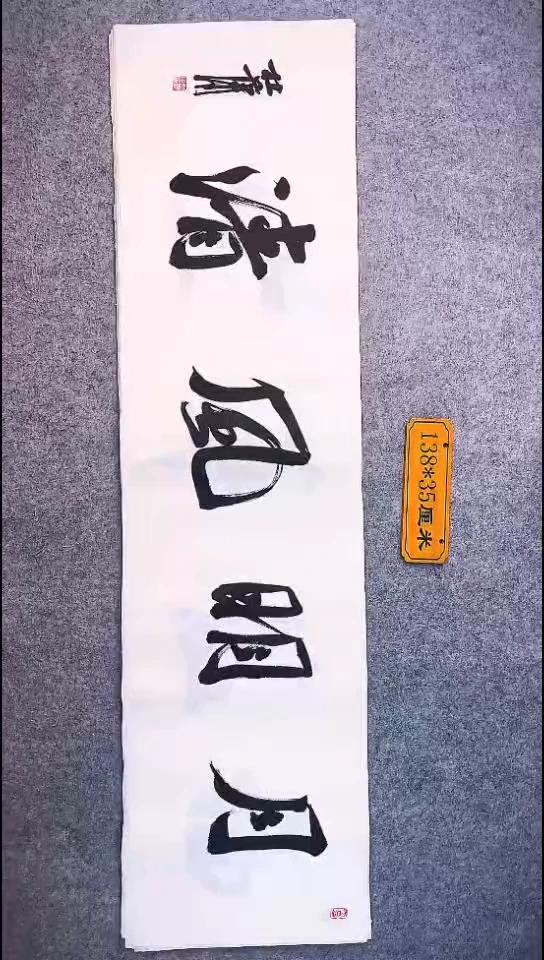 月明風清
138*35厘米